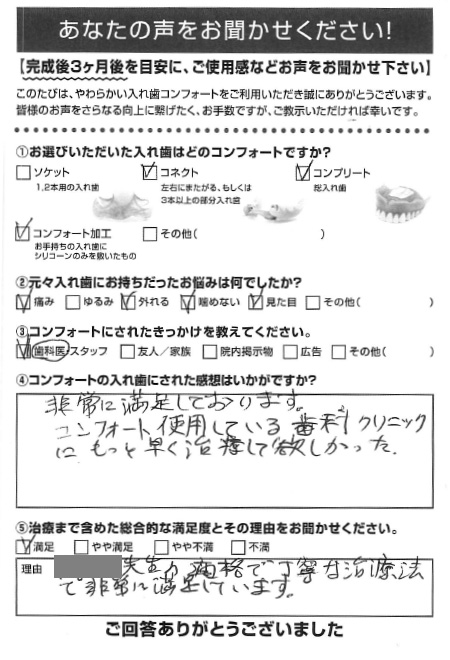 あなたの声をお聞かせください!
【完成後3ヶ月後を目安に、ご使用感などお声をお聞かせ下さい】
このたびは、やわらかい入れ歯コンフォートをご利用いただき誠にありがとうございます。
皆様のお声をさらなる向上に繋げたく、お手数ですが、ご教示いただければ幸いです。
①お選びいただいた入れ歯はどのコンフォートですか?
ソケット
1,2本用の入れ歯
コネクト
左右にまたがる、もしくは
3本以上の部分入れ歯
コンプリート
総入れ歯
コンフォート加工
お手持ちの入れ歯に
シリコーンのみを敷いたもの
その他( )
②元々入れ歯にお持ちだったお悩みは何でしたか?
痛み ゆるみ 外れる 噛めない 見た目 その他( )
③コンフォートにされたきっかけを教えてください。
歯科医・スタッフ 友人/家族 院内掲示物 広告 その他( )
④コンフォートの入れ歯にされた感想はいかがですか?
非常に満足しております。
コンフォート使用している歯科クリニック
にもっと早く治療して欲しかった.
⑤治療まで含めた総合的な満足度とその理由をお聞かせください。
満足 やや満足 やや不満 不満
理由
先生の 性格で丁寧な治療法
で非常に満足しています。
ご回答ありがとうございました